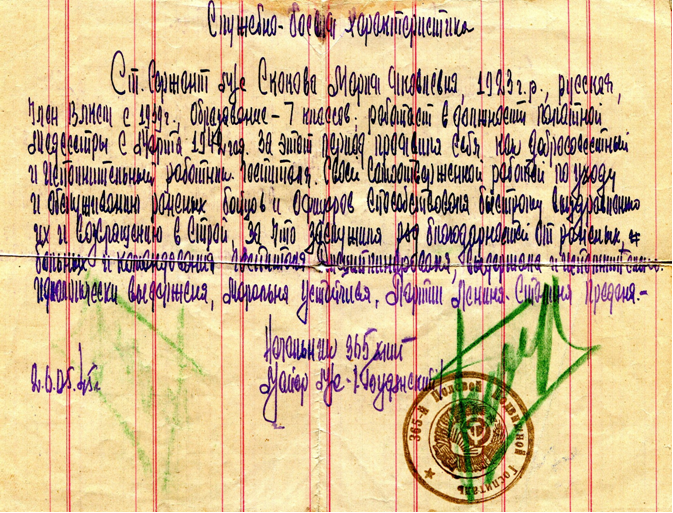 Служебно-боевая характеристика
Ст. Сержант м/с Скокова Мария Яковлевна, 1923 г.р., русская,
член ВЛКСМ с 1939г., Образование - 7 классов. работает в должности палатной
Медсестры с Марта 1944 года. За этот период проявила себя, как добросовестный
и исполнительный работник госпиталя. Своей самоотверженной работой по уходу
и обслуживанию раненых бойцов и офицеров способствовала быстрому выздоровлению
их и возвращению в строй, за что заслужила ряд благодарностей от раненых и
больных и командования госпиталя. Дисциплинирована, выдержана и исполнительна.
политически выдержана, Морально устойчива, Партии Ленина-Сталина предана.-
Начальник 365
26.05.45г. Майор м/с
365-й Полевой Подвижной Госпиталь